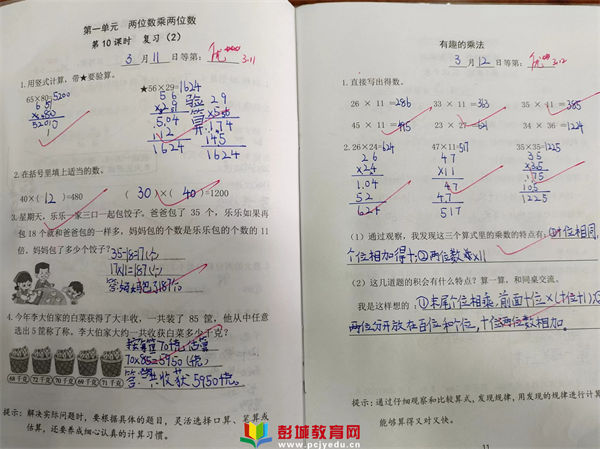 第一单元 两位数乘两位数
第10课时 复习(2)
3月11日等第: 优 3.11
1.用竖式计算，带★要验算。
65×80=5200
★56×29=1624
65
×80
5200
56
×29
504
112
1624
验算
29
×56
174
145
1624
2.在括号里填上适当的数。
40×(12)=480 (30)×(40)=1200
3.星期天，乐乐一家三口一起包饺子，爸爸包了 35 个，乐乐如果再
包18个就和爸爸包的一样多，妈妈包的个数是乐乐包的个数的11
倍。妈妈包了多少个饺子?
35-18=17(个)
17×11=187(个)
答:妈妈包了187个
4.今年李大伯家的白菜获得了大丰收，一共装了 85 筐，他从中任意
选出5筐称了称。李大伯家大约一共收获白菜多少千克?
70×85=5950(千克)
答:共收获5950千克
68千克 72千克 70千克 69千克 71千克
提示: 解决实际问题时，要根据具体的题目，灵活选择口算、笔算或
估算，还要养成细心认真的计算习惯。
有趣的乘法
3月12日等第: 优 3.12
1.直接写出得数。
26×11=286 33×11=363 35×11=385
45×11=495 23×27=621 34×36=1224
2.26×24=624 47×11=517 35×35=1225
26
×24
104
52
624
47
×11
47
47
517
35
×35
175
105
1225
(1)通过观察，我发现这三个算式里的乘数的特点有:①十位相同,
个位相加得十,②两位数乘×11
(2)这几道题的积会有什么特点?算一算，和同桌交流。
我是这样想的:①末尾个位相乘,前面十位×(十位+1)②
两位分开放在百位和个位,十位两位数相加。
提示:通过仔细观察和比较算式，发现规律，用发现的规律进行计算
能够算得又对又快。
11
彭城教育网
www.pcjyedu.cn